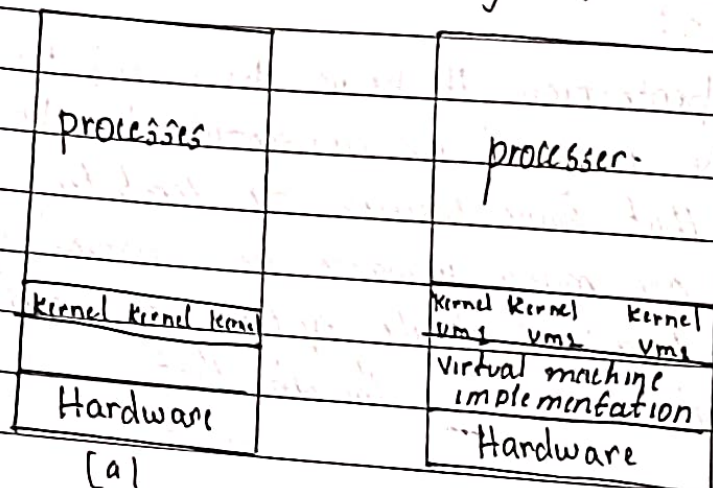 processes
Kernel Kernel Kernel
Hardware
[a]
processer.
Kernel Kernel Kernel
Vm1 Vm2 Vm2
Virtual machine
implementation
Hardware